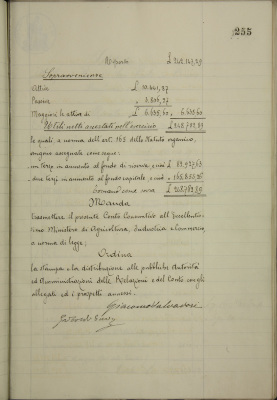 255
Riporto £ 242.143,29
Sopravvenienze
Attive £ 10.441,87
Passive " 3.806,27
Maggiori le attive di £ 6.635,60 " 6.635,60
Utili netti accertati nell'esercizio £ 248.778,89
le quali a norma dell'art. 165 dello Statuto organico,
vengono assegnate come segue:
un terzo in aumento al fondo di riserva, e cioè £ 82.926,3
due terzi in aumento al fondo capitale, e cioè "
Tornano come sopra £ 248.778,89
Manda
trasmettere il presente Conto Consuntivo all'Eccellentis-
simo Ministero di Agricoltura, Industria e Commercio
a norma di legge;
Ordina
la stampa e la distribuzione alle pubbliche Autorità
ed Amministrazioni delle Relazioni e del Conto cogli
allegati ed i prospetti annessi.
Giacomo Salvadori